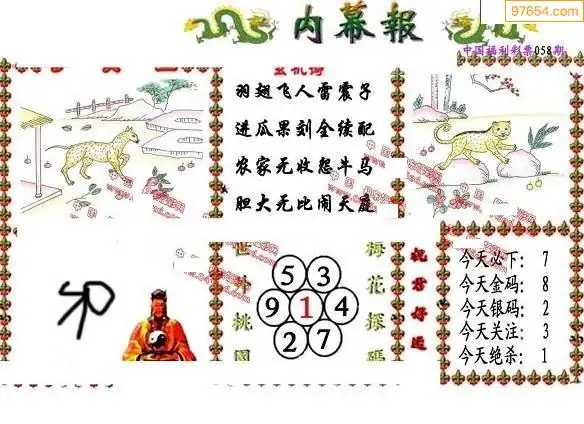 97654.com
内幕報
中国福利彩票058期
玄机诗
羽翅飞人雷震子
进瓜果刘全续配
农家无收怨牛马
胆大无比闹天庭
世外桃園
5 3
9 1 4
2 7
梅花探碼
祝君好运
今天必下: 7
今天金码: 8
今天银码: 2
今天关注: 3
今天绝杀: 1